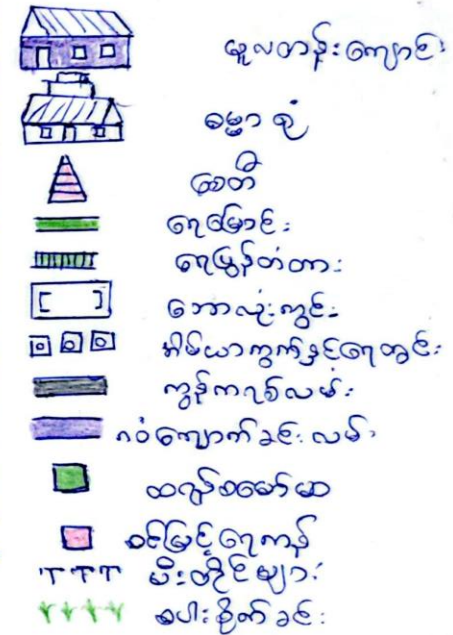 မူလတန်းကျောင်း
ဓမ္မာရုံ
စေတီ
ရေမြောင်း
ရေပြွန်တံတား
ဘောလုံးကွင်း
အိမ်ယာကွက်နှင့်ရေတွင်း
ကွန်ကရစ်လမ်း
ဂဝံကျောက်ခင်းလမ်း
ထရန်စဖော်မာ
စင်မြင့်ရေကန်
မီးတိုင်များ
စပါးစိုက်ခင်း